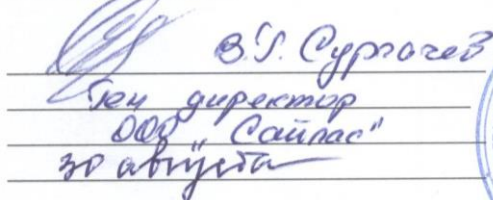 В.Г. Сургачев
Ген директор
ООО "Сайлас"
30 августа